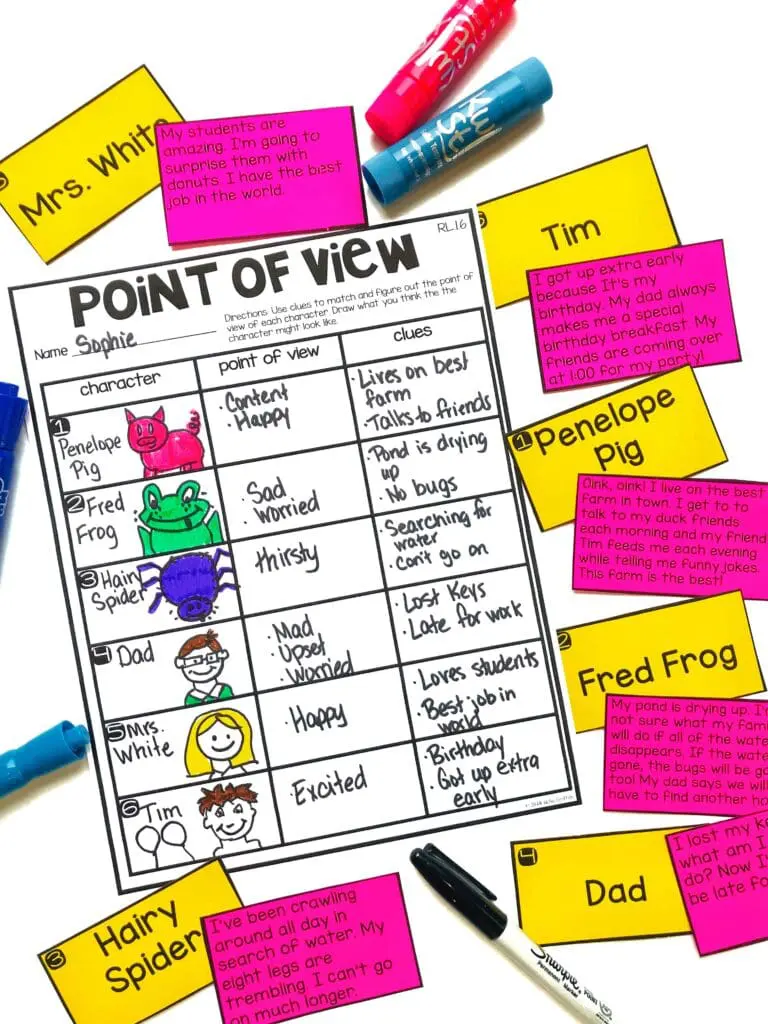 Mrs. White
My students are
amazing. I'm going to
surprise them with
donuts. I have the best
job in the world.
Tim
I got up extra early
because It's my
birthday. My dad always
makes me a special
birthday breakfast. My
friends are coming over
at 1:00 for my party!
RL.1.6
POINT OF VIEW
Name Sophie
Directions: Use clues to match and figure out the point of
view of each character. Draw what you think the the
character might look like.
character
point of view
clues
1
Penelope
Pig
· Content
· Happy
· Lives on best
farm
· Talks to friends
2 Fred
Frog
· Sad
· worried
· Pond is drying
up
· No bugs
3 Hairy
Spider
thirsty
· Searching for
water
· Can't go on
4 Dad
· Mad
· Upset
· Worried
· Lost Keys
· Late for work
5 Mrs.
White
· Happy
· Loves students
· Best job in
world
6 Tim
· Excited
· Birthday
· Got up extra
early
1 Penelope
Pig
Oink, oink! I live on the best
farm in town. I get to to
talk to my duck friends
each morning and my friend
Tim feeds me each evening
while telling me funny jokes.
This farm is the best!
2
Fred Frog
My pond is drying up. I'm
not sure what my
will do if all of the
disappears. If the
gone, the bugs will be
too! My dad says we will
have to find another
4
Dad
I lost my
what am I
do? Now
be late
3
Hairy
Spider
I've been crawling
around all day in
search of water. My
eight legs are
trembling. I can't go
on much longer.
Sharpie
Permanent Marker